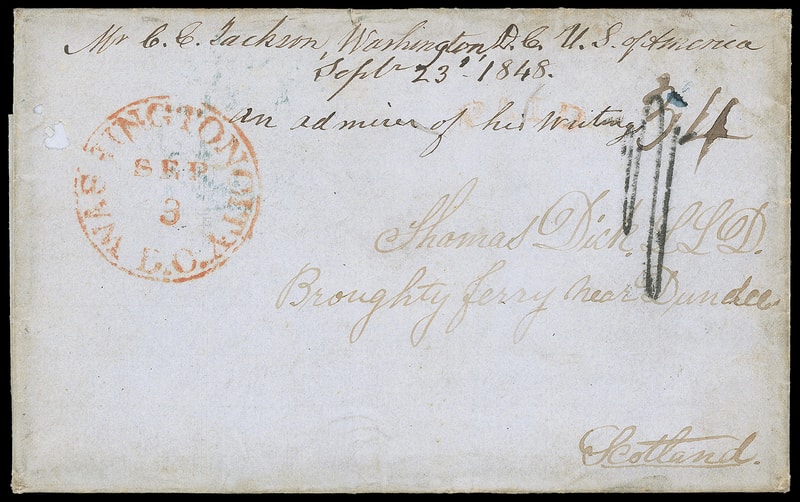 Mr C. C. Jackson, Washington, D. C. U. S. of America
Septr 23d, 1848.
an admirer of his writings
PAID
34
WASHINGTON CITY
SEP
3
D.C.
Thomas Dick. LLD.
Broughty ferry near Dundee.
Scotland.